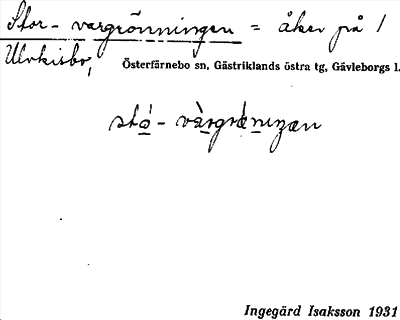 Stor-vargrönningen = åker på /
Ulvkisbo,
Österfärnebo sn, Gästriklands östra tg, Gävleborgs l.
Ingegärd Isaksson 1931